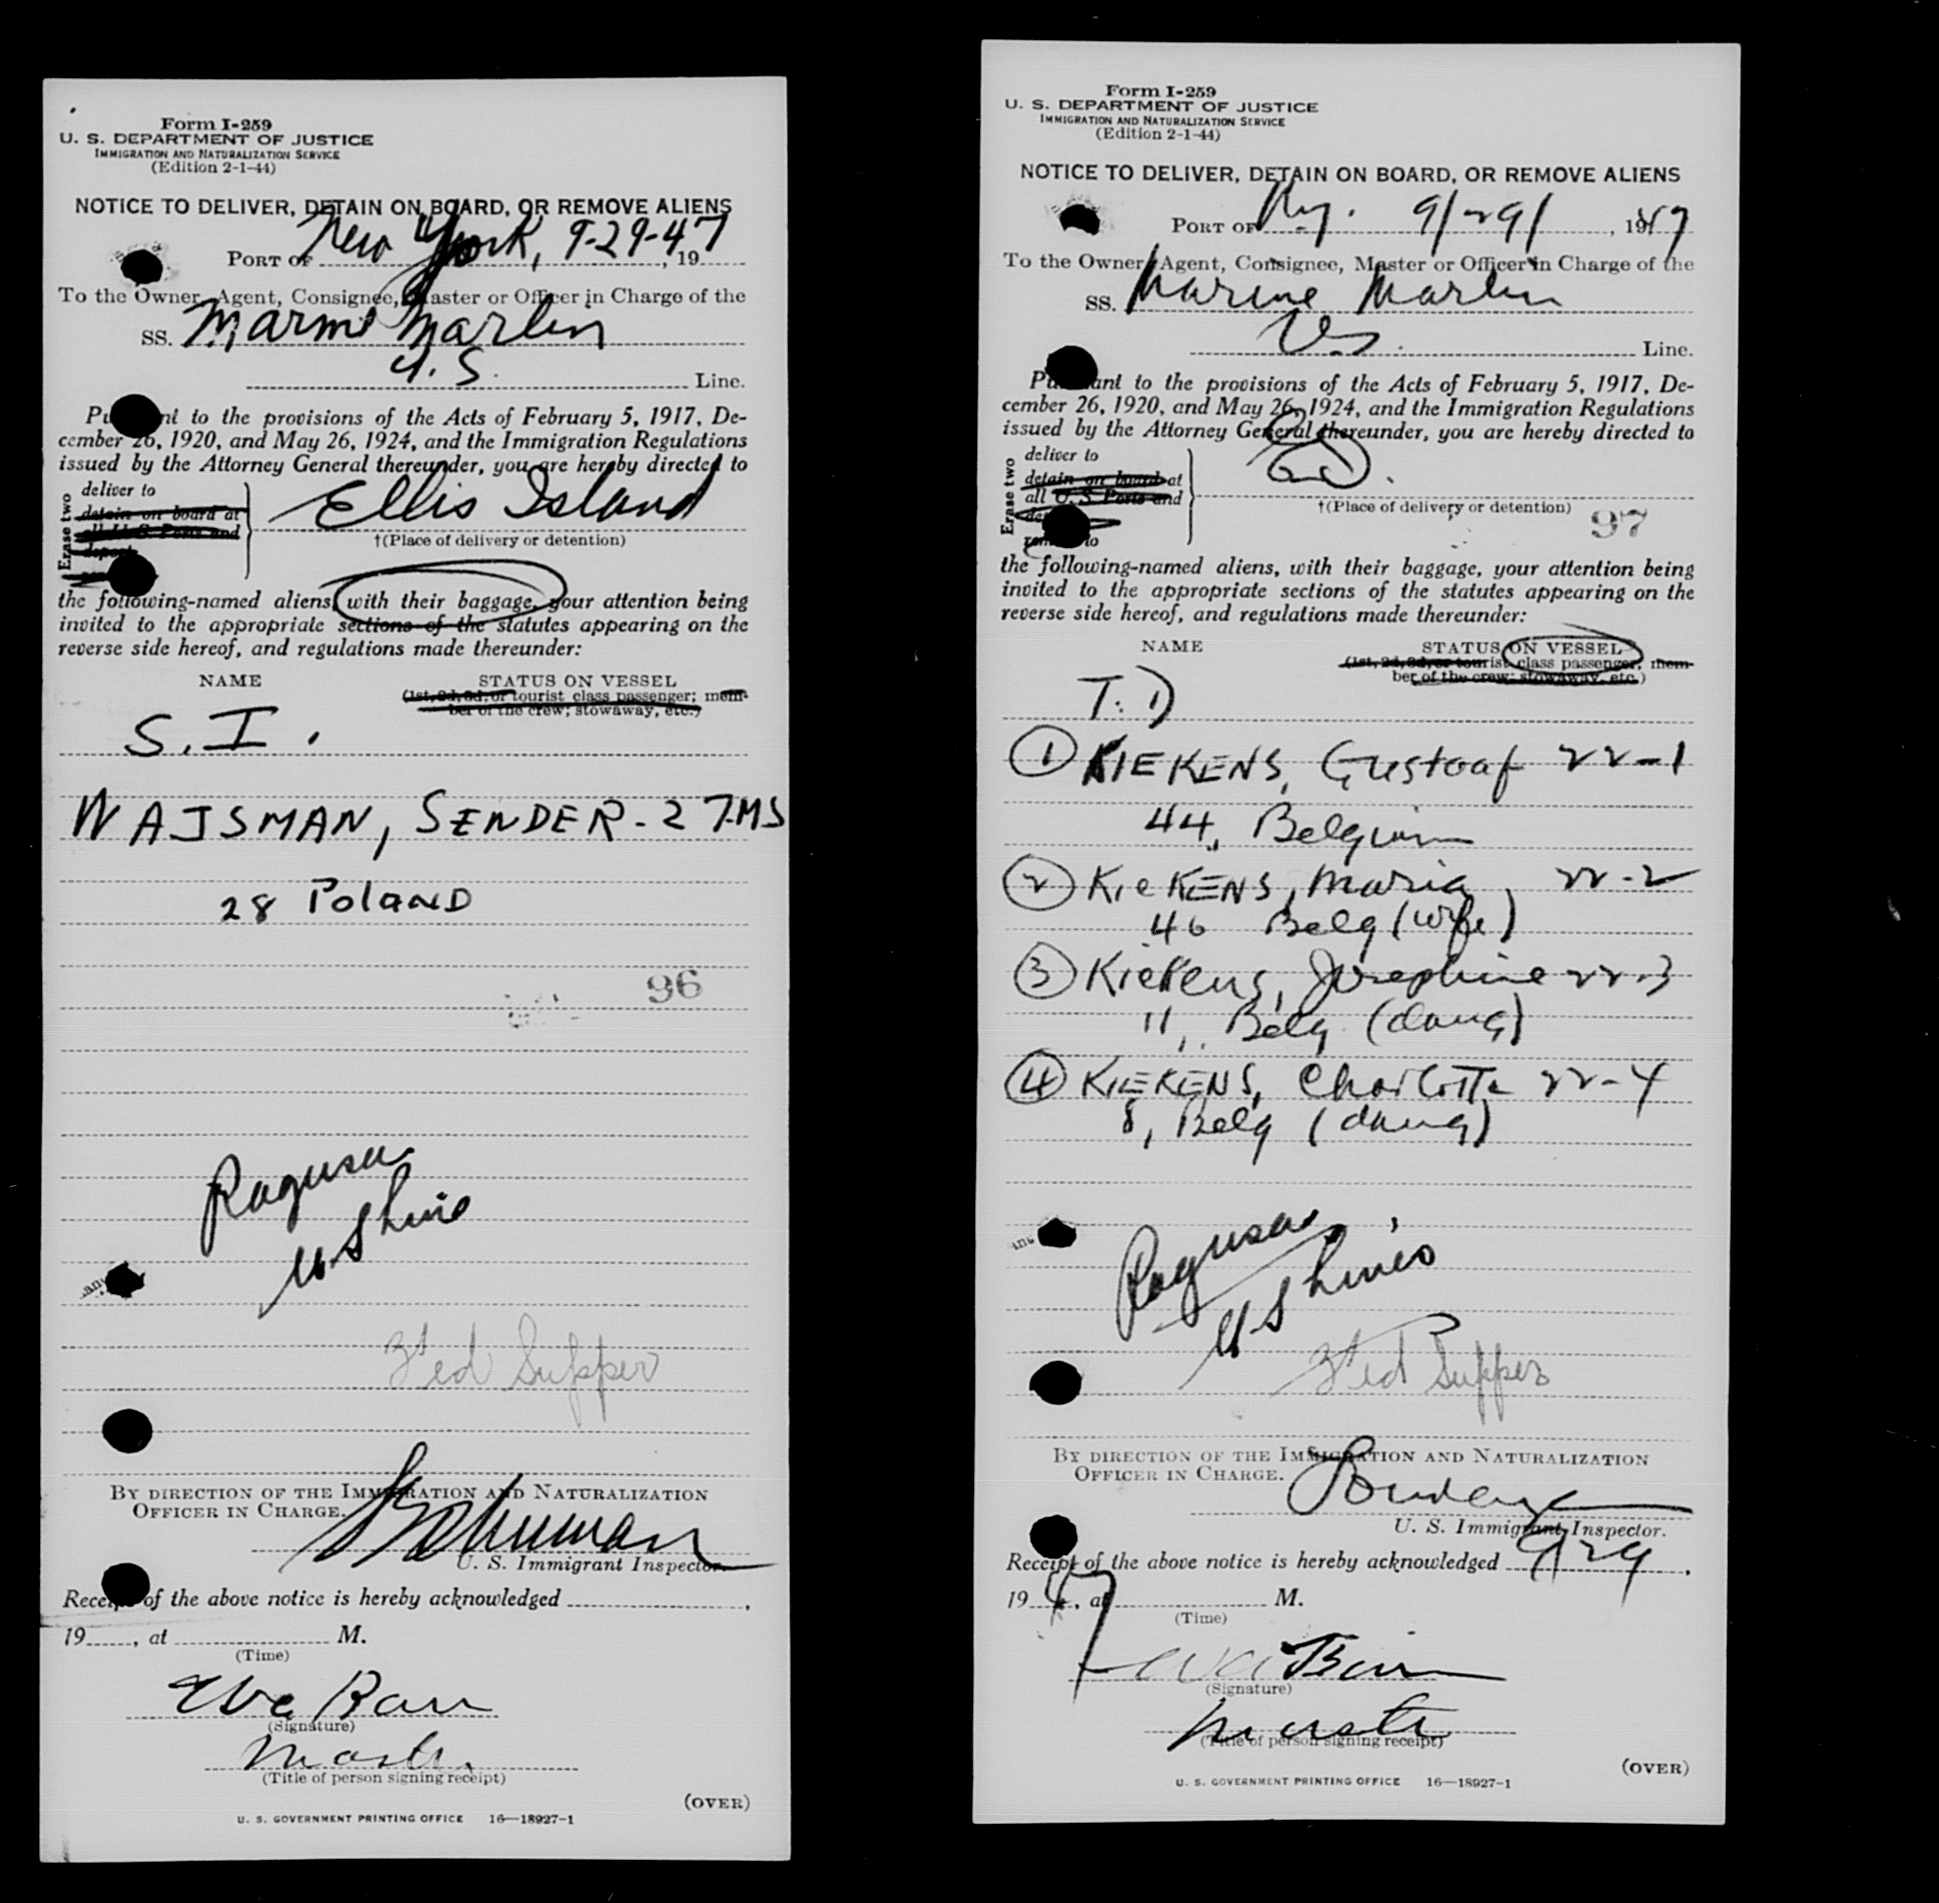 Form I-259
U. S. DEPARTMENT OF JUSTICE
IMMIGRATION AND NATURALIZATION SERVICE
(Edition 2-1-44)
NOTICE TO DELIVER, DETAIN ON BOARD, OR REMOVE ALIENS
PORT OF New York, 9-29-47, 19
To the Owner, Agent, Consignee, Master or Officer in Charge of the
SS. Marine Marlin
U.S. Line.
Pursuant to the provisions of the Acts of February 5, 1917, De-
cember 26, 1920, and May 26, 1924, and the Immigration Regulations
issued by the Attorney General thereunder, you are hereby directed to
Erase two
deliver to
detain on board at
all U. S. Ports and
deport
Ellis Island
†(Place of delivery or detention)
the following-named aliens, with their baggage, your attention being
invited to the appropriate sections of the statutes appearing on the
reverse side hereof, and regulations made thereunder:
NAME STATUS ON VESSEL
(1st, 2d, 3d, or tourist class passenger; mem-
ber of the crew; stowaway, etc.)
S.I.
WAJSMAN, SENDER - 27-MS
28 POLAND
96
Ragusa
US Line
3 Fed Supper
BY DIRECTION OF THE IMMIGRATION AND NATURALIZATION
OFFICER IN CHARGE.
U. S. Immigrant Inspector.
Receipt of the above notice is hereby acknowledged
19, at M.
(Time)
(Signature)
(Title of person signing receipt)
(OVER)
U. S. GOVERNMENT PRINTING OFFICE 16—18927-1
Form I-259
U. S. DEPARTMENT OF JUSTICE
IMMIGRATION AND NATURALIZATION SERVICE
(Edition 2-1-44)
NOTICE TO DELIVER, DETAIN ON BOARD, OR REMOVE ALIENS
PORT OF Ny. 9/29/, 1947
To the Owner, Agent, Consignee, Master or Officer in Charge of the
SS. Marine Marlin
US. Line.
Pursuant to the provisions of the Acts of February 5, 1917, De-
cember 26, 1920, and May 26, 1924, and the Immigration Regulations
issued by the Attorney General thereunder, you are hereby directed to
Erase two
deliver to
detain on board at
all U. S. Ports and
remove to
†(Place of delivery or detention)
97
the following-named aliens, with their baggage, your attention being
invited to the appropriate sections of the statutes appearing on the
reverse side hereof, and regulations made thereunder:
NAME STATUS ON VESSEL
(1st, 2d, 3d, or tourist class passenger; mem-
ber of the crew; stowaway, etc.)
T.D
1 KIEKENS, Gustaaf 22-1
44, Belgium
2 KieKENS, Maria, 22-2
46 Belg (wife)
3 Kiekens, Josephine 22-3
11, Belg (daug)
4 KIEKENS, Charlotte 22-4
8, Belg (daug)
Ragusa
US Lines
3 Fed Supper
BY DIRECTION OF THE IMMIGRATION AND NATURALIZATION
OFFICER IN CHARGE.
U. S. Immigrant Inspector.
Receipt of the above notice is hereby acknowledged 9/29,
1947, at M.
(Time)
(Signature)
(Title of person signing receipt)
(OVER)
U. S. GOVERNMENT PRINTING OFFICE 16—18927-1